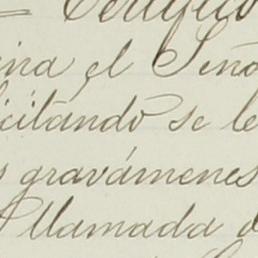 Certifico
ina el Seño
icitando se le
s gravámenes
llamada d